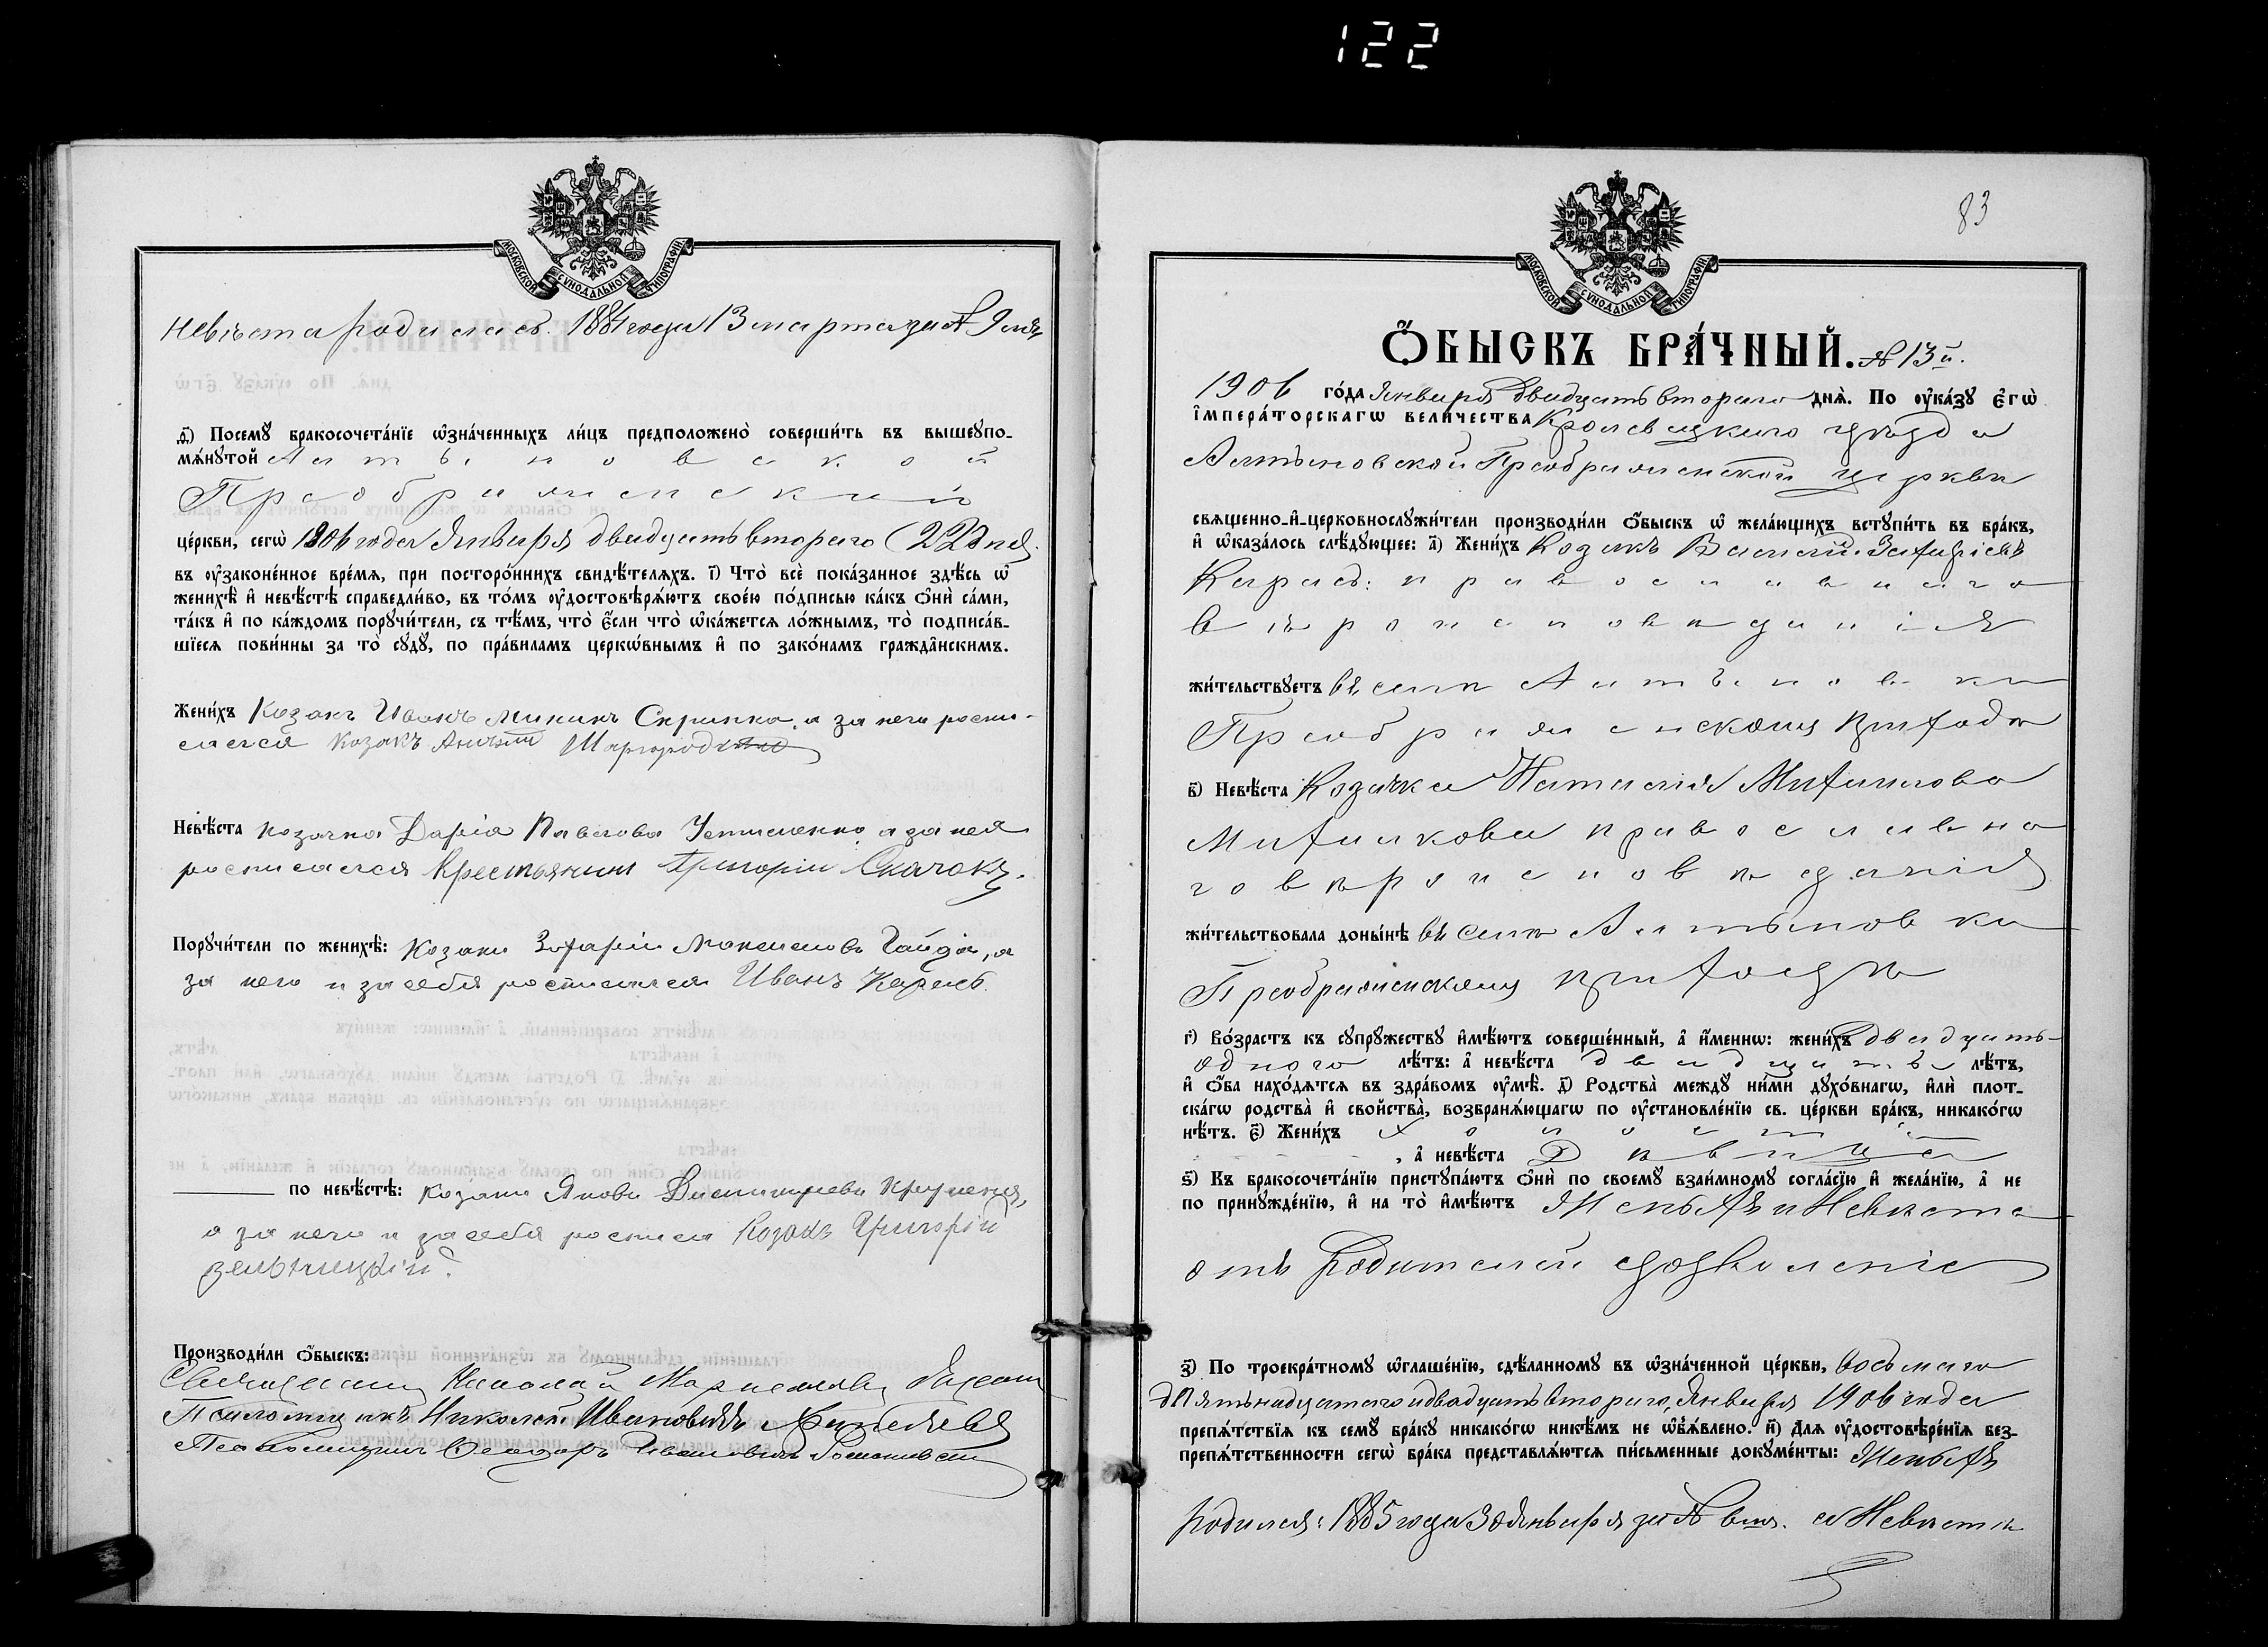 122
МОСКОВСКОЙ СУНОДАЛЬНОЙ ТИПОГРАФІИ
Невѣста родилась 1884 года 13 марта за № 9 мъ
д҃) Посемꙋ̀ бракосочета́нїе ѡ҆зна́ченныхъ ли́цъ предположено̀ соверши́ть въ вышеꙋпо-
мѧ́нꙋтой Алтыновской
Преображенской
це́ркви, сегѡ̀ 1906 года Января двадцать втораго (22) дня
въ ᲂу҆зако́ненное вре́мѧ, при посторо́ннихъ свидѣ́телѧхъ. і҃) Что̀ всѐ пока́занное здѣ́сь ѡ҆
женихѣ̀ и҆ невѣ́стѣ справедли́во, въ то́мъ ᲂу҆достовѣрѧ́ютъ свое́ю по́дписью ка́къ ѻ҆нѝ са́ми,
та́къ и҆ по ка́ждомъ порꙋчи́тели, съ тѣ́мъ, что̀ є҆́сли что̀ ѡ҆ка́жетсѧ ло́жнымъ, то̀ подписа́в-
шїесѧ пови́нны за то̀ сꙋдꙋ̀, по пра́виламъ церкѡ́внымъ и҆ по зако́намъ гражда̑нскимъ.
Жени́хъ Козакъ Иванъ Микинъ Скрипка, а за него роспи-
сался козакъ Шаргород
Невѣ́ста козачка Дарія Павлова а за нея
росписался Крестьянинъ Григорій Скачокъ.
Порꙋчи́тели по женихѣ̀: Козаки Захарій Максимовъ Гайда, а
за него и за себя росписался Иванъ Карась.
по невѣ́стѣ: козаки Яковъ
а за него и за себя росписа Козакъ Григорій
Производи́ли ѻ҆́быскъ:
Священникъ Николай
Псаломщикъ Николай Ивановичъ
Псаломщикъ Ѳеодоръ Ивановичъ
83
МОСКОВСКОЙ СУНОДАЛЬНОЙ ТИПОГРАФІИ
Ѻ҆́БЫСКЪ БРА́ЧНЫЙ. № 13й.
1906 го́да Января двадцать втораго днѧ̀. По ᲂу҆ка́зꙋ Є҆гѡ̀
і҆мпера́торскагѡ вели́чества Кролевецкаго уѣзда
Алтыновской Преображенской церкви
свѧще́нно-и҆-церковнослꙋжи́тели производи́ли ѻ҆́быскъ ѡ҆ жела́ющихъ встꙋпи́ть въ бра́къ,
и҆ ѡ҆каза́лось слѣ́дꙋющее: а҃) Жени́хъ Козакъ Василій Захаріевъ
Карась: православнаго
вѣроисповѣданія
жи́тельствꙋетъ въ селѣ Алтыновки
Преображенскому приходѣ
в҃) Невѣ́ста Козачка Наталія Михаилова
Михалкова православна
го вѣроисповѣданія
жи́тельствовала доны́нѣ въ селѣ Алтыновки
Преображенскому приходѣ
г҃) Во́зрастъ къ сꙋпрꙋ́жествꙋ и҆мѣ́ютъ соверше́нный, а҆ и҆́меннѡ: жени́хъ двадцать
одного лѣ́тъ: а҆ невѣ́ста двадцать лѣ́тъ,
и҆ ѻ҆́ба нахо́дѧтсѧ въ здра́вомъ ᲂу҆мѣ̀. д҃) Родства̀ междꙋ̀ ни́ми дꙋхо́внагѡ, и҆лѝ плот-
ска́гѡ родства̀ и҆ сво́йства, возбранѧ́ющагѡ по ᲂу҆становле́нїю св. це́ркви бра́къ, никако́гѡ
нѣ́тъ. є҃) Жени́хъ холостъ
, а҆ невѣ́ста Дѣвица
ѕ҃) Къ бракосочета́нїю пристꙋпа́ютъ ѻ҆нѝ по своемꙋ̀ взаи́мномꙋ согла́сїю и҆ жела́нїю, а҆ не
по принꙋжде́нїю, и҆ на то̀ и҆мѣ́ютъ Женыхъ и Невѣста
отъ Родителей дозволеніе
з҃) По троекра́тномꙋ ѡ҆глаше́нїю, сдѣ́ланномꙋ въ ѡ҆зна́ченной це́ркви, восьмаго
пятьнадцатаго и двадцать втораго Января 1906 года
препѧ́тствїѧ къ семꙋ̀ бра́кꙋ никако́гѡ никѣ́мъ не ѡ҆б̾ѧ́влено. и҃) Длѧ ᲂу҆достовѣре́нїѧ без-
препѧ́тственности сегѡ̀ бра́ка представлѧ́ютсѧ пи́сьменные докꙋме́нты: Женыхъ
родился: 1885 года 30 Января за № а Невѣста